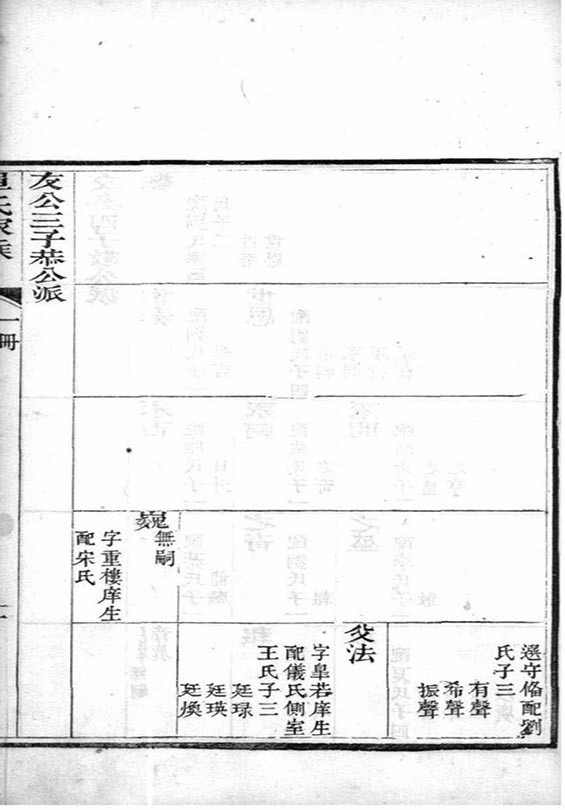 選守俻配劉
氏子三
有聲
希聲
振聲
法
字皐若庠生
配儀氏側室
王氏子三
廷琭
廷瑛
廷煥
巍
無嗣
字重樓庠生
配宋氏
友公三子恭公派
氏家乘
一冊